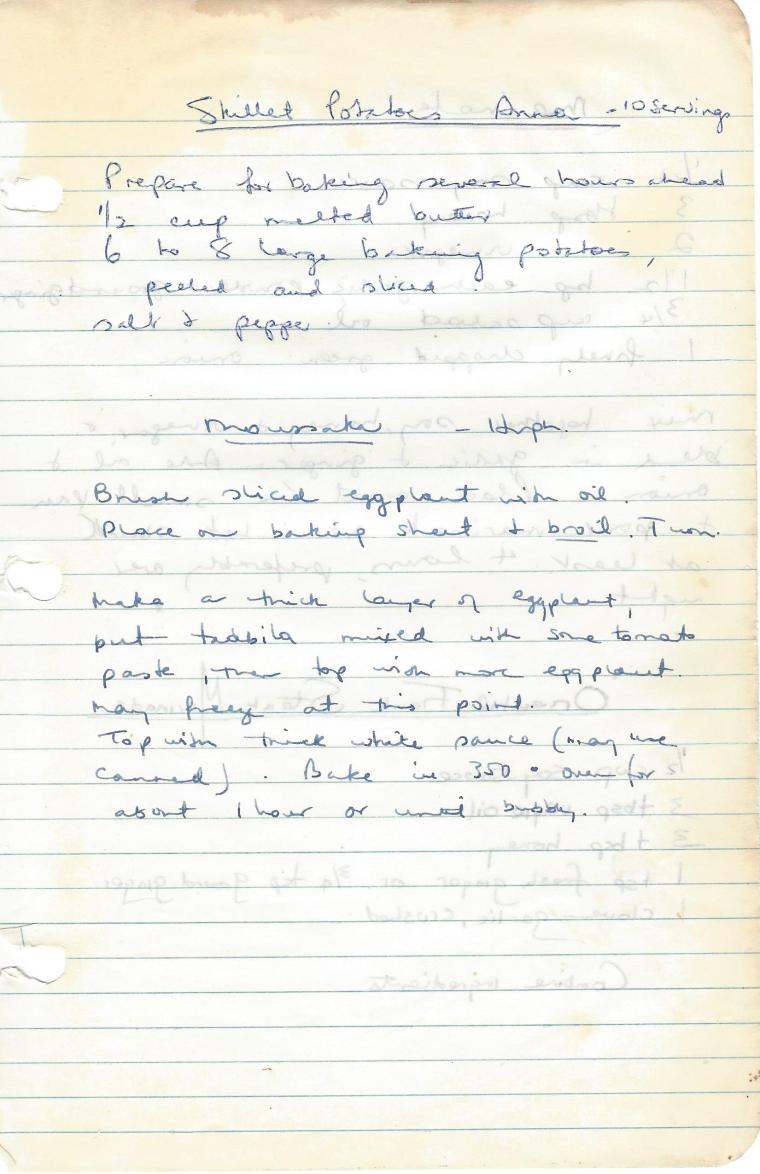 Skillet Potatoes Anna - 10 servings
Prepare for baking several hours ahead
1/2 cup melted butter
6 to 8 large baking potatoes,
peeled and sliced.
salt & pepper.
Moussaka -
Brush sliced eggplant with oil.
Place on baking sheet & broil. Turn.
Make a thick layer of eggplant,
put mixed with some tomato
paste, then top with more eggplant.
May freeze at this point.
Top with thick white sauce (may use
canned). Bake in 350° oven for
about 1 hour or until bubbly.